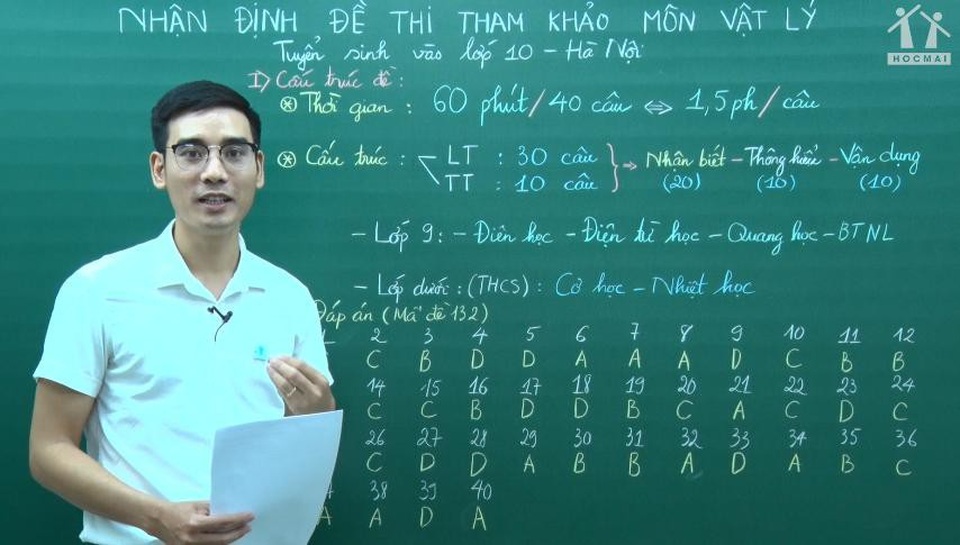 NHẬN ĐỊNH ĐỀ THI THAM KHẢO MÔN VẬT LÝ
Tuyển sinh vào lớp 10 - Hà Nội
HOCMAI
I) Cấu trúc đề:
⊛ Thời gian : 60 phút / 40 câu ⇔ 1,5ph / câu
⊛ Cấu trúc : LT : 30 câu
TT : 10 câu } → Nhận biết - Thông hiểu - Vận dụng
(20) (10) (10)
- Lớp 9: - Điện học - Điện từ học - Quang học - BTNL
- Lớp dưới: (THCS): Cơ học - Nhiệt học
Đáp án (Mã đề 132)
2 3 4 5 6 7 8 9 10 11 12
C B D D A A A D C B B
14 15 16 17 18 19 20 21 22 23 24
C C B D D B C A C D C
26 27 28 29 30 31 32 33 34 35 36
C D D A B B A D A B C
38 39 40
A A D A